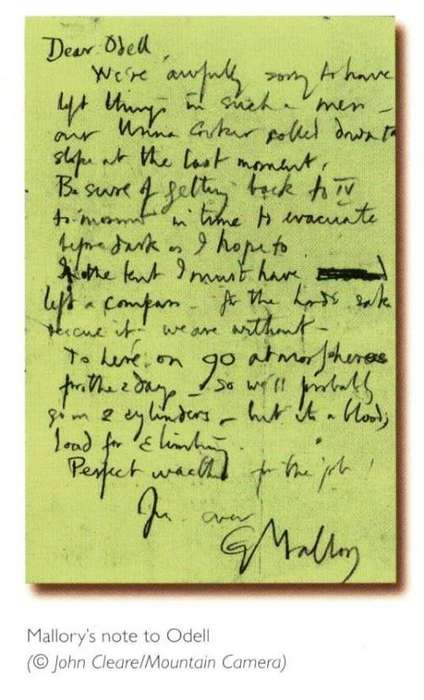 Dear Odell,
We're awfully sorry to have
left things in such a mess –
our Unna Cooker rolled down the
slope at the last moment.
Be sure of getting back to IV
to-morrow in time to evacuate
before dark as I hope to.
In the tent I must have
left a compass – for the Lord's sake
rescue it: we are without –
To here on 90 atmospheres
for the 2 days – so we'll probably
go on 2 cylinders – but it's a bloody
load for climbing.
Perfect weather for the job!
Yrs ever
G Mallory
Mallory's note to Odell
(© John Cleare/Mountain Camera)